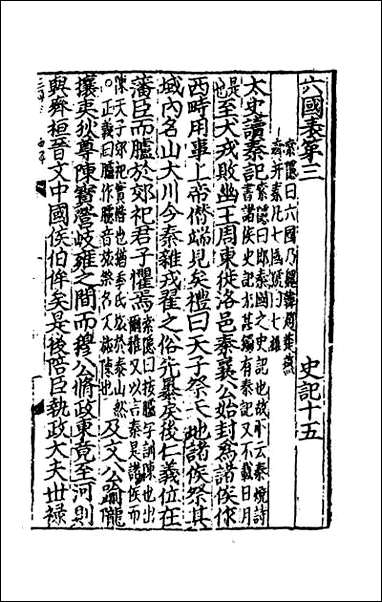 六國表第三 史記十五
索隱曰六國乃魏韓趙楚燕
齊并秦凡七國號曰七雄
太史讀秦記
索隱曰即秦國之史記也故下云秦燒詩
書諸侯史記尤甚獨有秦記又不載日月
是
也
至犬戎敗幽王周東徙洛邑秦襄公始封爲諸侯作
西畤用事上帝僭端見矣禮曰天子祭天地諸侯祭其
域內名山大川今秦雜戎翟之俗先暴戾後仁義位在
藩臣而臚於郊祀君子懼焉
索隱曰按臚字訓陳也出
爾雅
又以言秦是諸侯而
陳天子郊祀實僭也猶季氏旅於泰山然
正義曰臚作臚音旅祭名又旅陳也
及文公踰隴
攘夷狄尊陳寶營岐雍之間而穆公脩政東竟至河則
與齊桓晉文中國侯伯侔矣是後陪臣執政大夫世祿